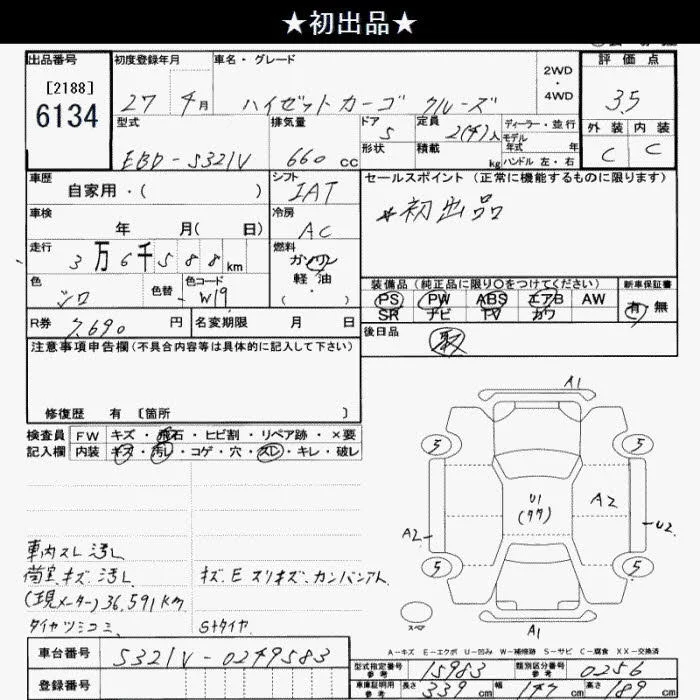 ★初出品★
出品番号 初度登録年月 車名・グレード 2WD・4WD 評価点
[2188]
6134
27 年 4月 ハイゼットカーゴ クルーズ 3.5
型式 排気量 ドア 5 定員 2(4)人 ディーラー・並行
EBD-S321V 660 cc 形状 積載 kg モデル年式 年 ハンドル 左・右
外装 内装
C C
車歴 自家用・( ) シフト IAT セールスポイント (正常に機能するものに限ります)
＊初出品
車検 年 月( 日) 冷房 AC
走行 3万6千588km 燃料 ガソリン 軽油 ( ・ )
色 シロ 色替 色コード W19
装備品 (純正品に限り○をつけてください) 新車保証書
PS PW ABS エアB AW 有・無
SR ナビ TV カワ
R券 7,690 円 名変期限 月 日 後日品 取
注意事項申告欄(不具合内容等は具体的に記入して下さい)
修復歴 有 〔箇所 〕
検査員 FW キズ・飛石・ヒビ割・リペア跡・×要
記入欄 内装 キズ・汚レ・コゲ・穴・スレ・キレ・破レ
A1
5 5
U1
(クサ)
A2
A2 U2
5 5
スペア
A1
車内スレ 汚レ
荷室キズ 汚レ キズ、E スリキズ、カンバンアト
(現メーター) 36,591 km
タイヤツミコミ Sトタイヤ
A-キズ E-エクボ U-凹み W-補修跡 S-サビ C-腐食 XX-交換済
車台番号 S321V-0249583
型式指定番号 参考 15983 類別区分番号 参考 0256
登録番号
車庫証明用 参考 長さ 339 cm 幅 147 cm 高さ 189 cm